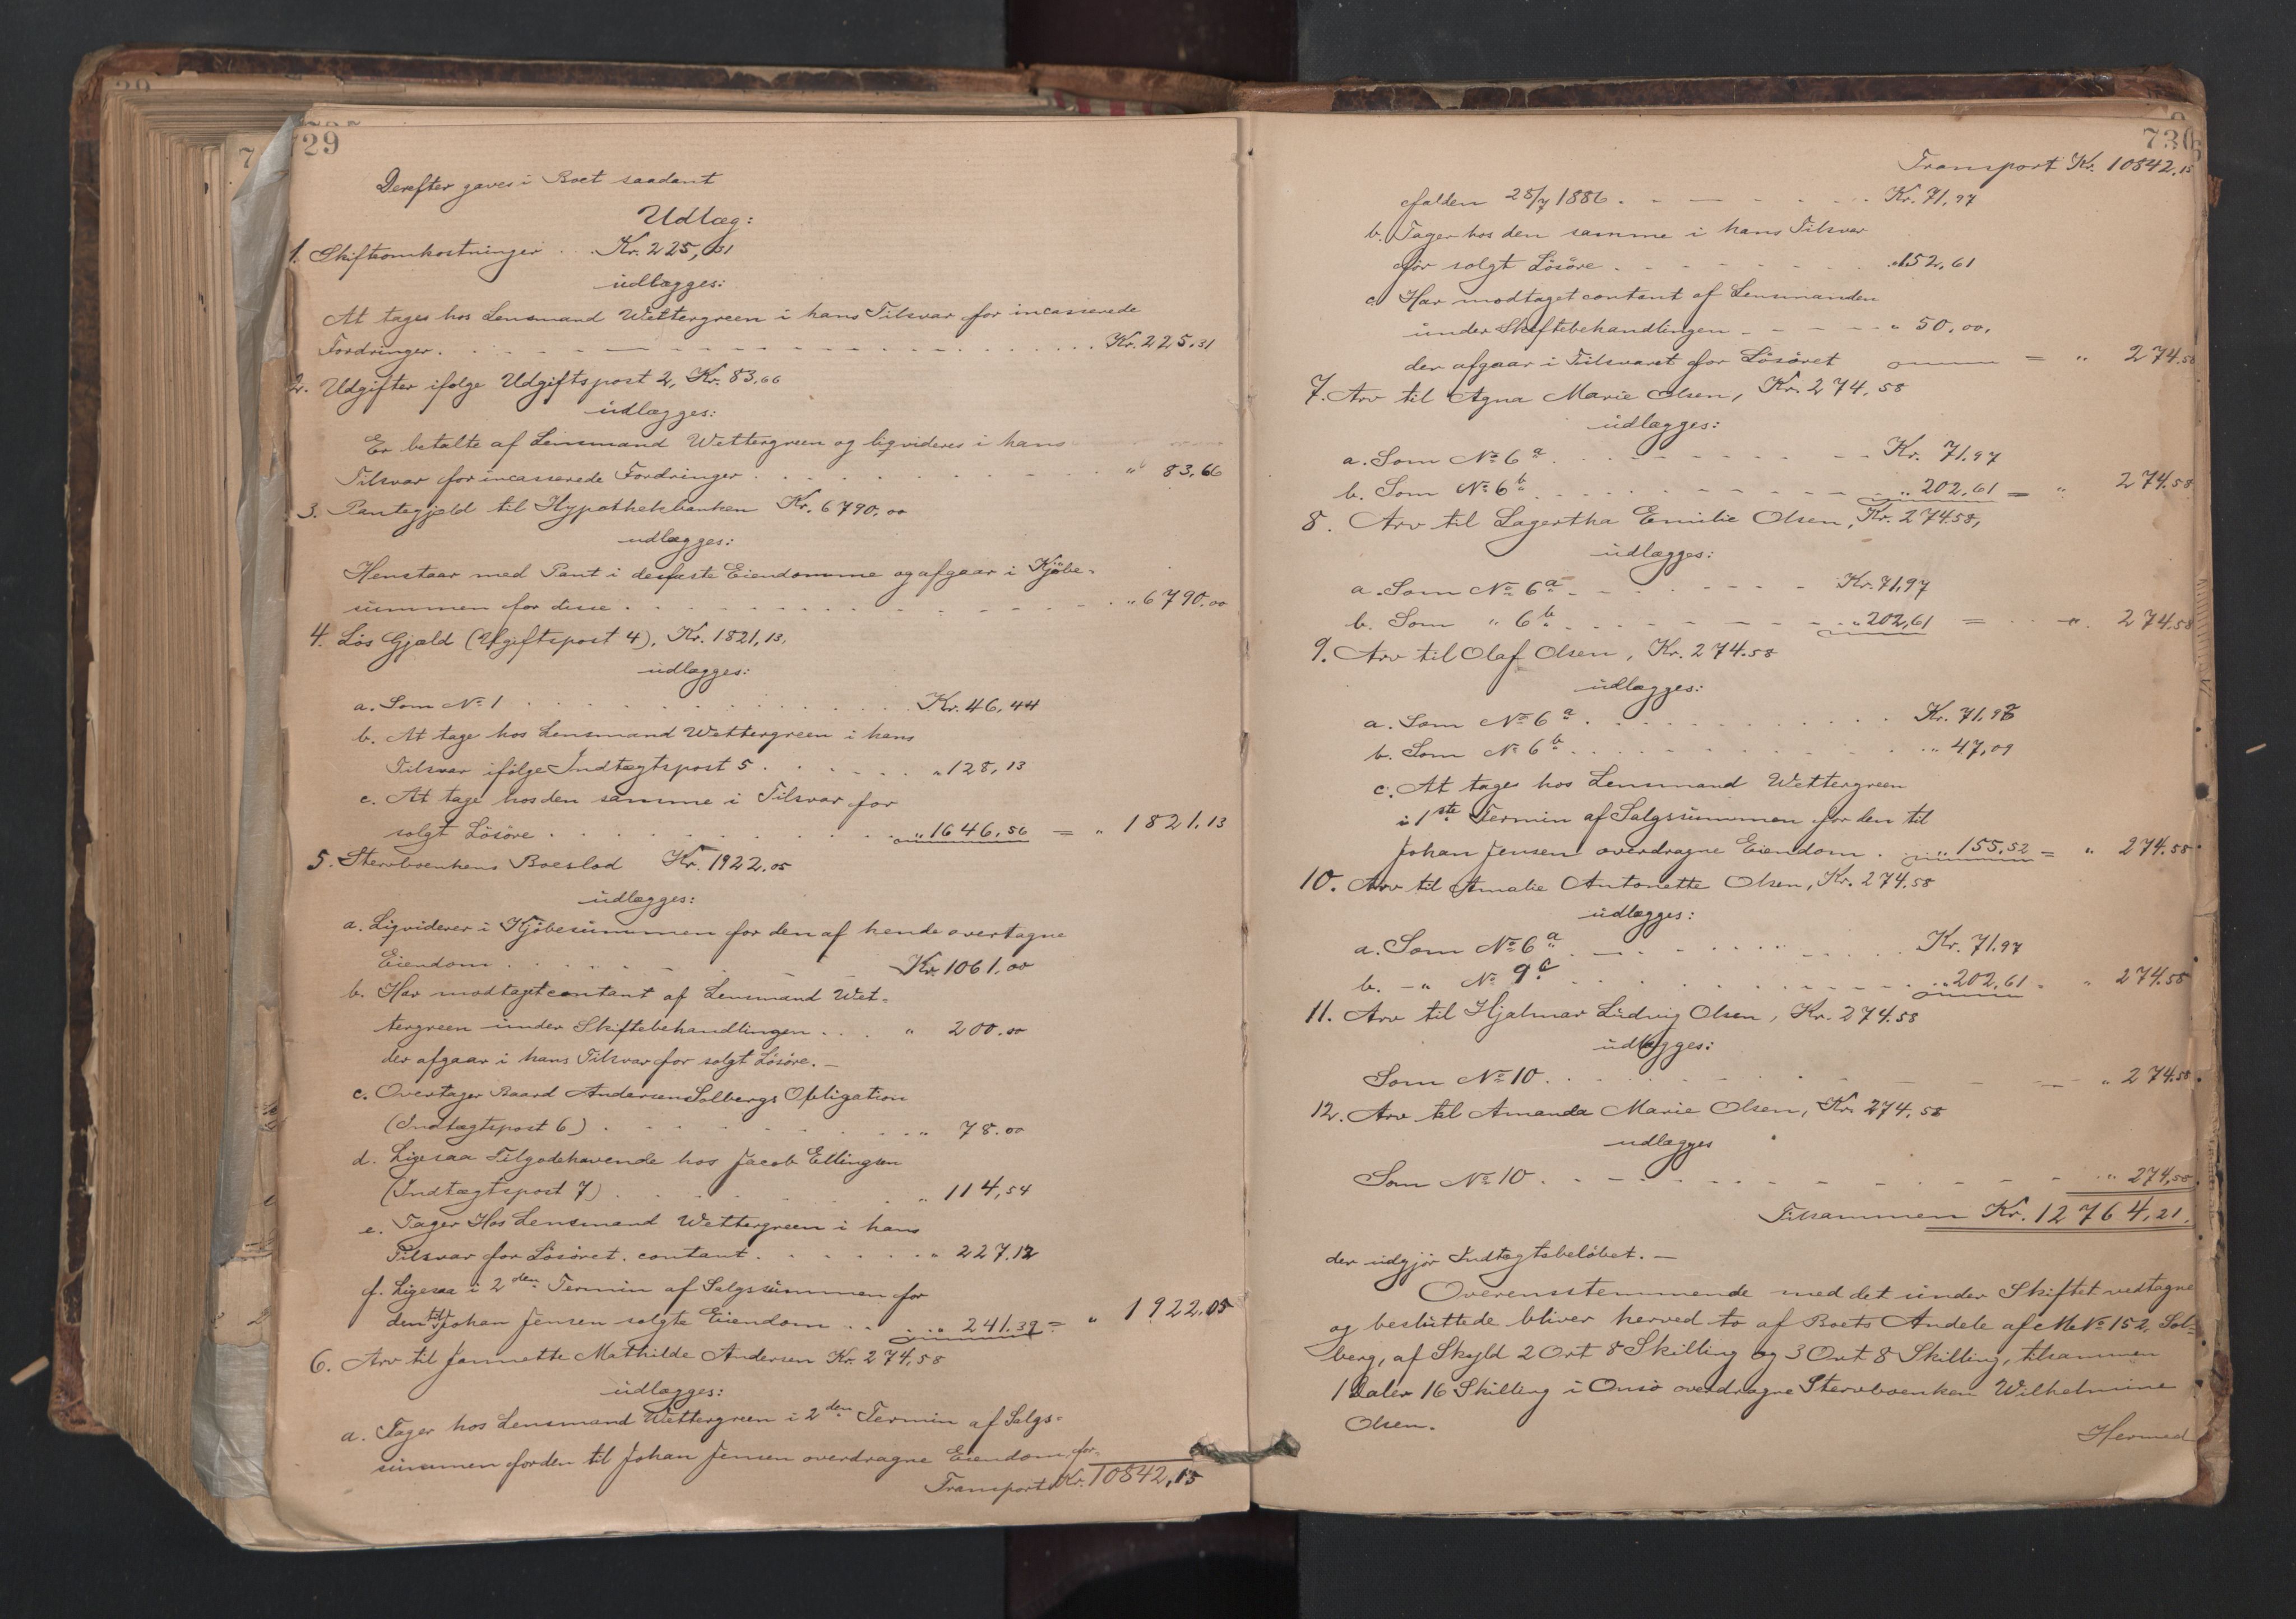 729
Derefter gaves i Boet saadant
Udlæg:
1. Skifteomkostninger . . Kr. 225,31
udlægges:
At tages hos Lensmand Wettergreen i hans Tilsvar for incasserede
Fordringer. . . . . Kr. 225.31
2. Udgifter ifølge Udgiftspost 2, Kr. 83,66
udlægges:
Er betalte af Lensmand Wettergreen og liqvideres i hans
Tilsvar for incasserede Fordringer . . . . „ 83,66
3. Pantegjæld til Hypothekbanken Kr. 6790.00
udlægges:
Henstaar med Pant i de faste Eiendomme og afgaar i Kjøbe-
summen for disse . . . . „ 6790.00
4. Løs Gjæld (Ugiftspost 4), Kr. 1821,13.
udlægges:
a. Som No 1 . . . . Kr. 46,44
b. At tage hos Lensmand Wettergreen i hans
Tilsvar ifølge Indtægtspost 5 . . . . „ 128,13
c. At tage hos den samme i Tilsvar for
solgt Løsøre . . . . „ 1646,56 = „ 1821,13
5. Stervboenkens Boeslod Kr. 1922.05
udlægges:
a. Liqviderer i Kjøbesummen for den af hende overtagne
Eiendom . . . . Kr. 1061.00
b. Har modtaget contant af Lensmand Wet-
tergreen under Skiftebehandlingen . . . „ 200.00
der afgaar i hans Tilsvar for solgt Løsøre. —
c. Overtager Baard Andersen Solbergs Obligation
(Indtægtspost 6) . . . . „ 78.00
d. Ligesaa Tilgodehavende hos Jacob Ellingsen
(Indtægtspost 7) . . . . „ 114,54
e. Tager Hos Lensmand Wettergreen i hans
Tilsvar for Løsøret. contant . . . . „ 227.12
f. Ligesaa i 2den Termin af Salgssummen for
den til Johan Jensen solgte Eiendom . . . „ 241.39 = „ 1922.05
6. Arv til Jannette Mathilde Andersen Kr. 274,58
udlægges:
a. Tager hos Lensmand Wettergreen i 2den Termin af Salgs-
summen for den til Johan Jensen overdragne Eiendom, for-
Transport Kr. 10842,15
730
Transport Kr. 10842.15
falden 28/7 1886 . . . . Kr. 71,97
b. Tager hos den samme i hans Tilsvar
for solgt Løsøre . . . . „ 152,61
c. Har modtaget contant af Lensmanden
under Skiftebehandlingen . . . . „ 50,00.
der afgaar i Tilsvaret for Løsøret = „ 274.58
7. Arv til Agna Marie Olsen, Kr. 274,58
udlægges:
a. Som No 6a . . . . Kr. 71.97
b. Som No 6b . . . . „ 202,61 = „ 274.58
8. Arv til Lagertha Emilie Olsen, Kr. 274.58,
udlægges:
a. Som No 6a . . . . Kr. 71,97
b. Som „ 6b . . . . „ 202,61 = „ 274.58
9. Arv til Olaf Olsen, Kr. 274.58
udlægges:
a. Som No 6a . . . . Kr. 71.97
b. Som No 6b . . . . „ 47,09
c. At tages hos Lensmand Wettergreen
i 1ste Termin af Salgssummen for den til
Johan Jensen overdragne Eiendom . „ 155,52 = „ 274.58
10. Arv til Amalie Antonette Olsen, Kr. 274.58
udlægges:
a. Som No 6a . . . . Kr. 71.97
b. — „ No 9c . . . . „ 202,61 = „ 274.58
11. Arv til Hjalmar Ludvig Olsen, Kr. 274.58
udlægges:
Som No 10 . . . . „ 274.58
12. Arv til Amanda Marie Olsen, Kr. 274,58
udlægges
Som No 10 . . . . „ 274,58
Tilsammen Kr. 12764,21.
der udgjør Indtægtsbeløbet. —
Overensstemmende med det under Skiftet vedtagne
og besluttede bliver herved to af Boets Andele af M No 152, Sol-
berg, af Skyld 2 Ort 8 Skilling og 3 Ort 8 Skilling, tilsammen
1 Daler 16 Skilling i Onsø overdragne Stervboenken Wilhelmine
Olsen.
Hermed